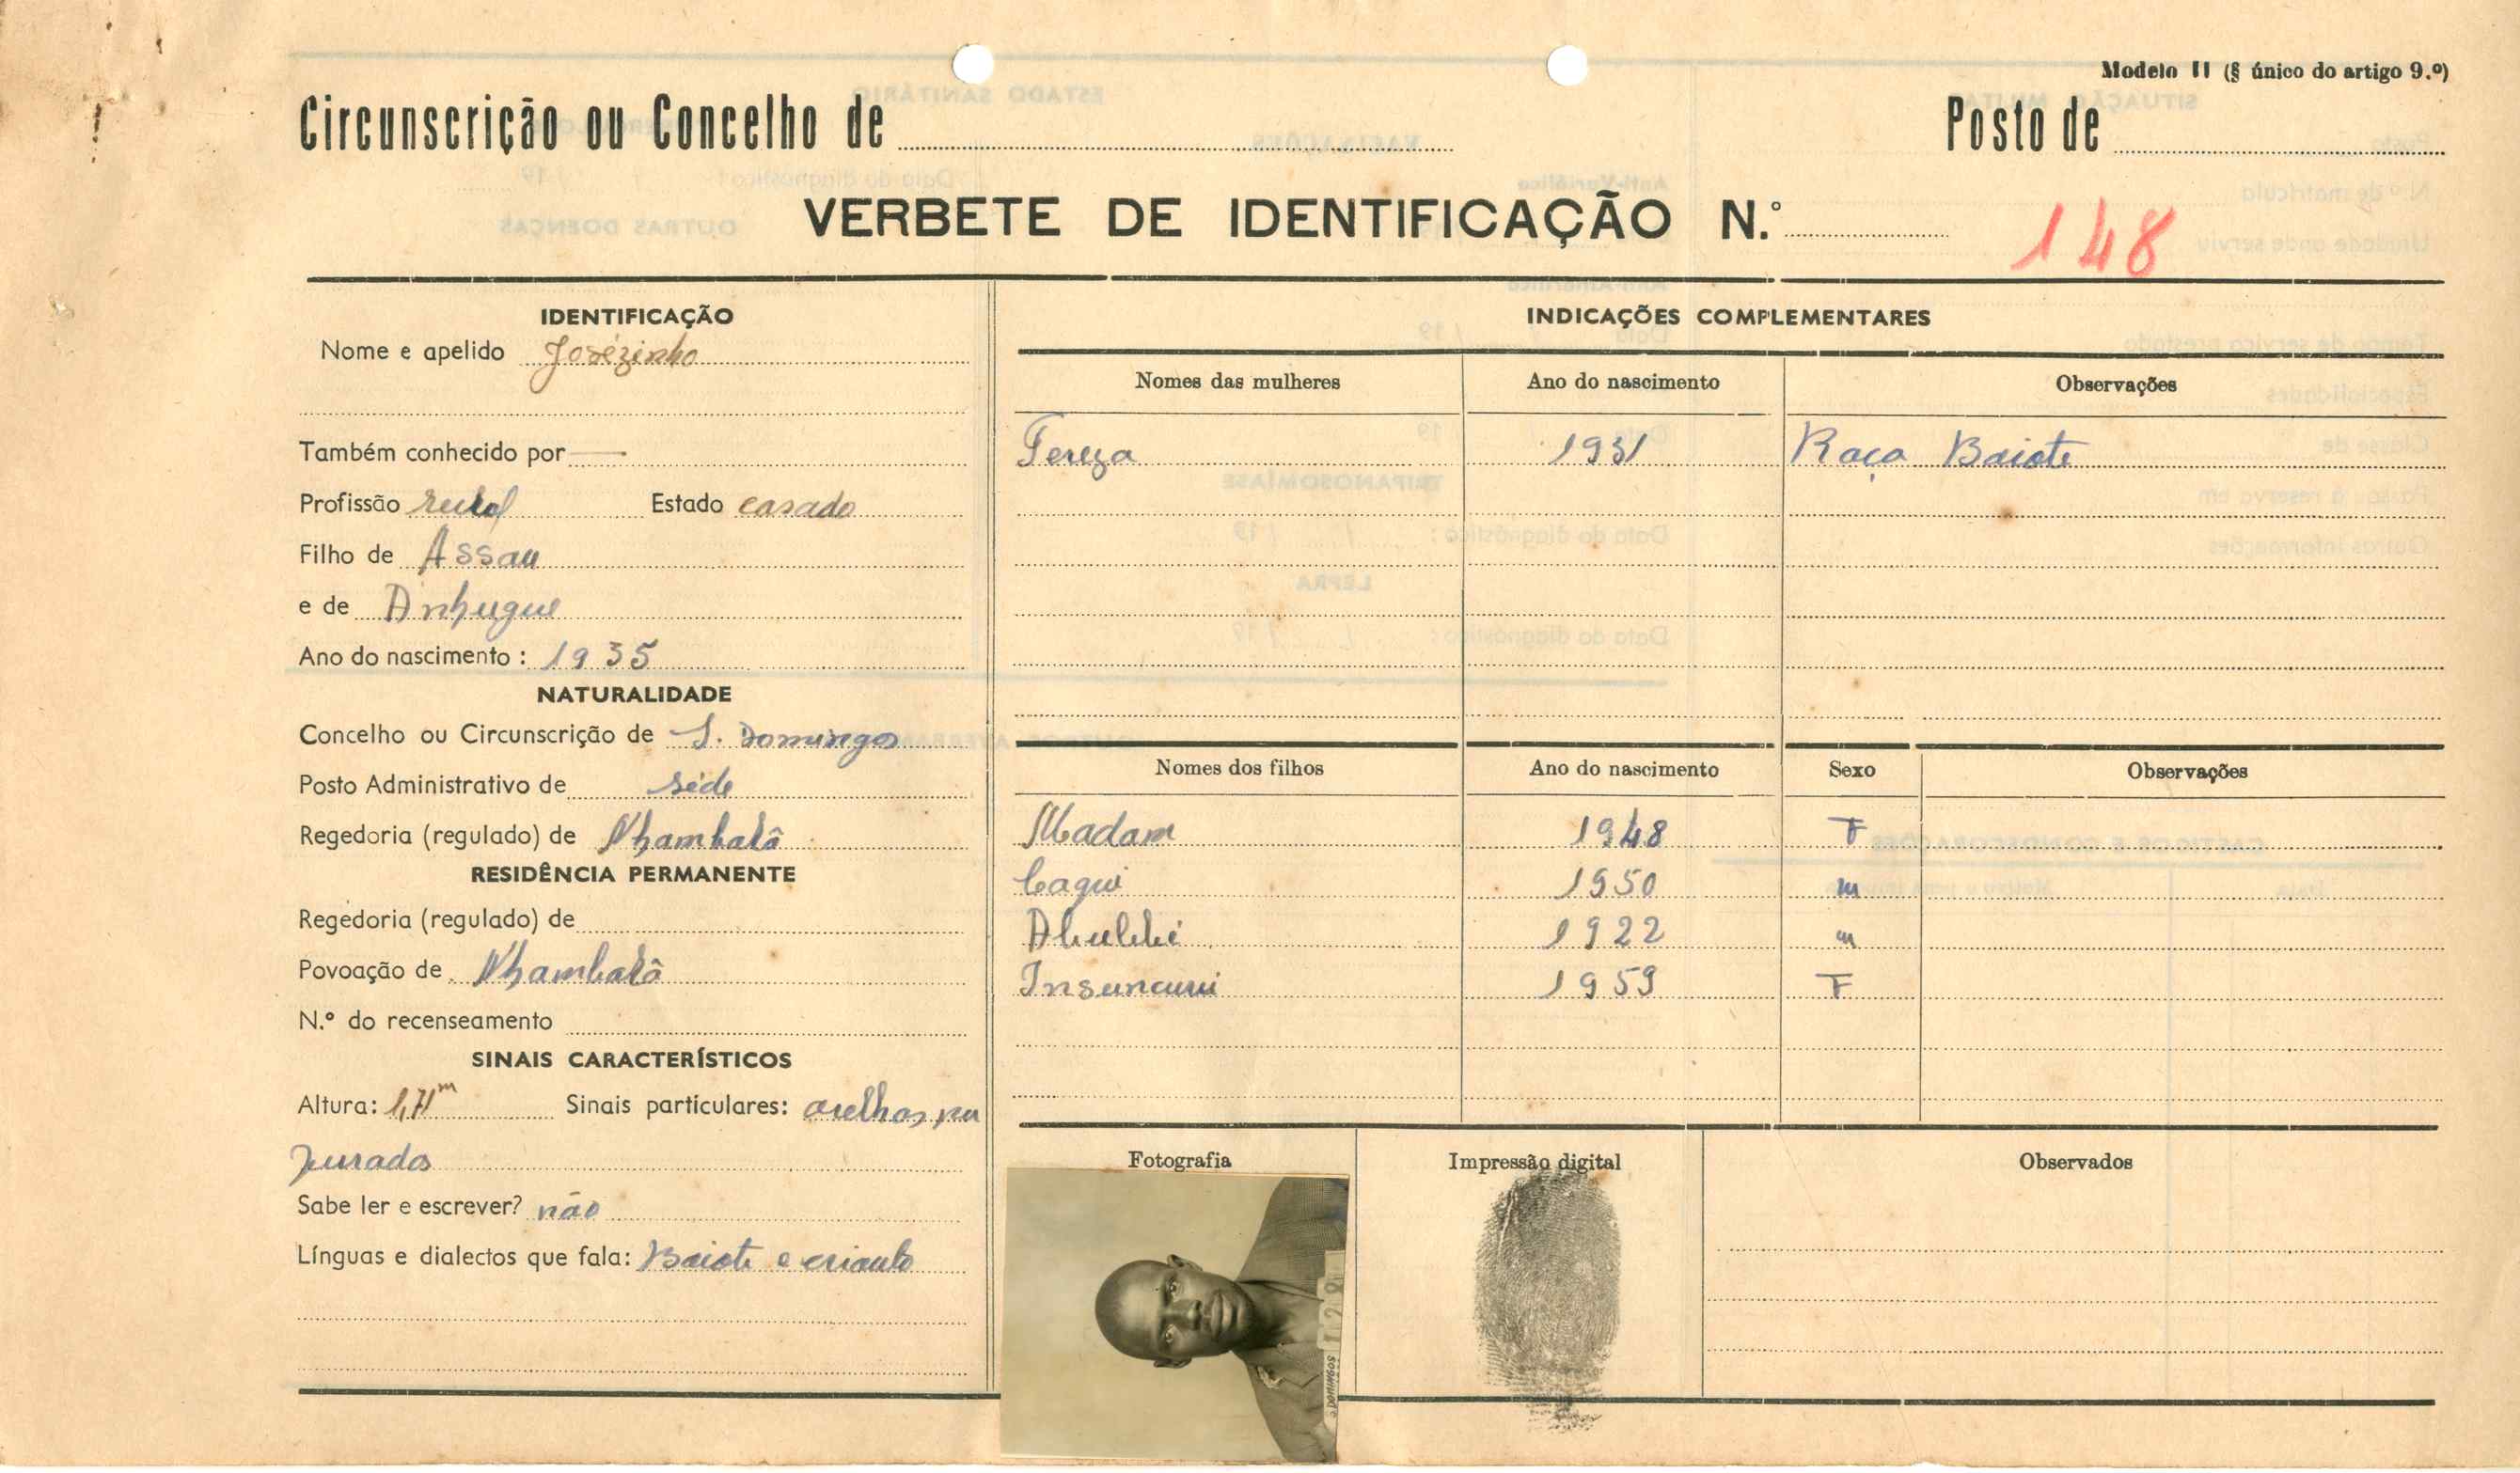 Modelo II (§ único do artigo 9.º)
Circunscrição ou Concelho de Posto de
VERBETE DE IDENTIFICAÇÃO N.º 148
IDENTIFICAÇÃO
Nome e apelido Josézinho
Também conhecido por —
Profissão rural Estado casado
Filho de Assau
e de Anhugue
Ano do nascimento: 1935
NATURALIDADE
Concelho ou Circunscrição de S. Domingos
Posto Administrativo de séde
Regedoria (regulado) de Nhambalô
RESIDÊNCIA PERMANENTE
Regedoria (regulado) de
Povoação de Nhambalô
N.º do recenseamento
SINAIS CARACTERÍSTICOS
Altura: 1,71m Sinais particulares: orelhas, pu
jurados
Sabe ler e escrever? não
Línguas e dialectos que fala: Baiote e crioulo
INDICAÇÕES COMPLEMENTARES
Nomes das mulheres Ano do nascimento Observações
Tereza 1931 Raça Baiote
Nomes dos filhos Ano do nascimento Sexo Observações
Madam 1948 F
Cagui 1950 m
1922 m
Insuncuui 1959 F
Fotografia Impressão digital Observados
S. DOMINGOS